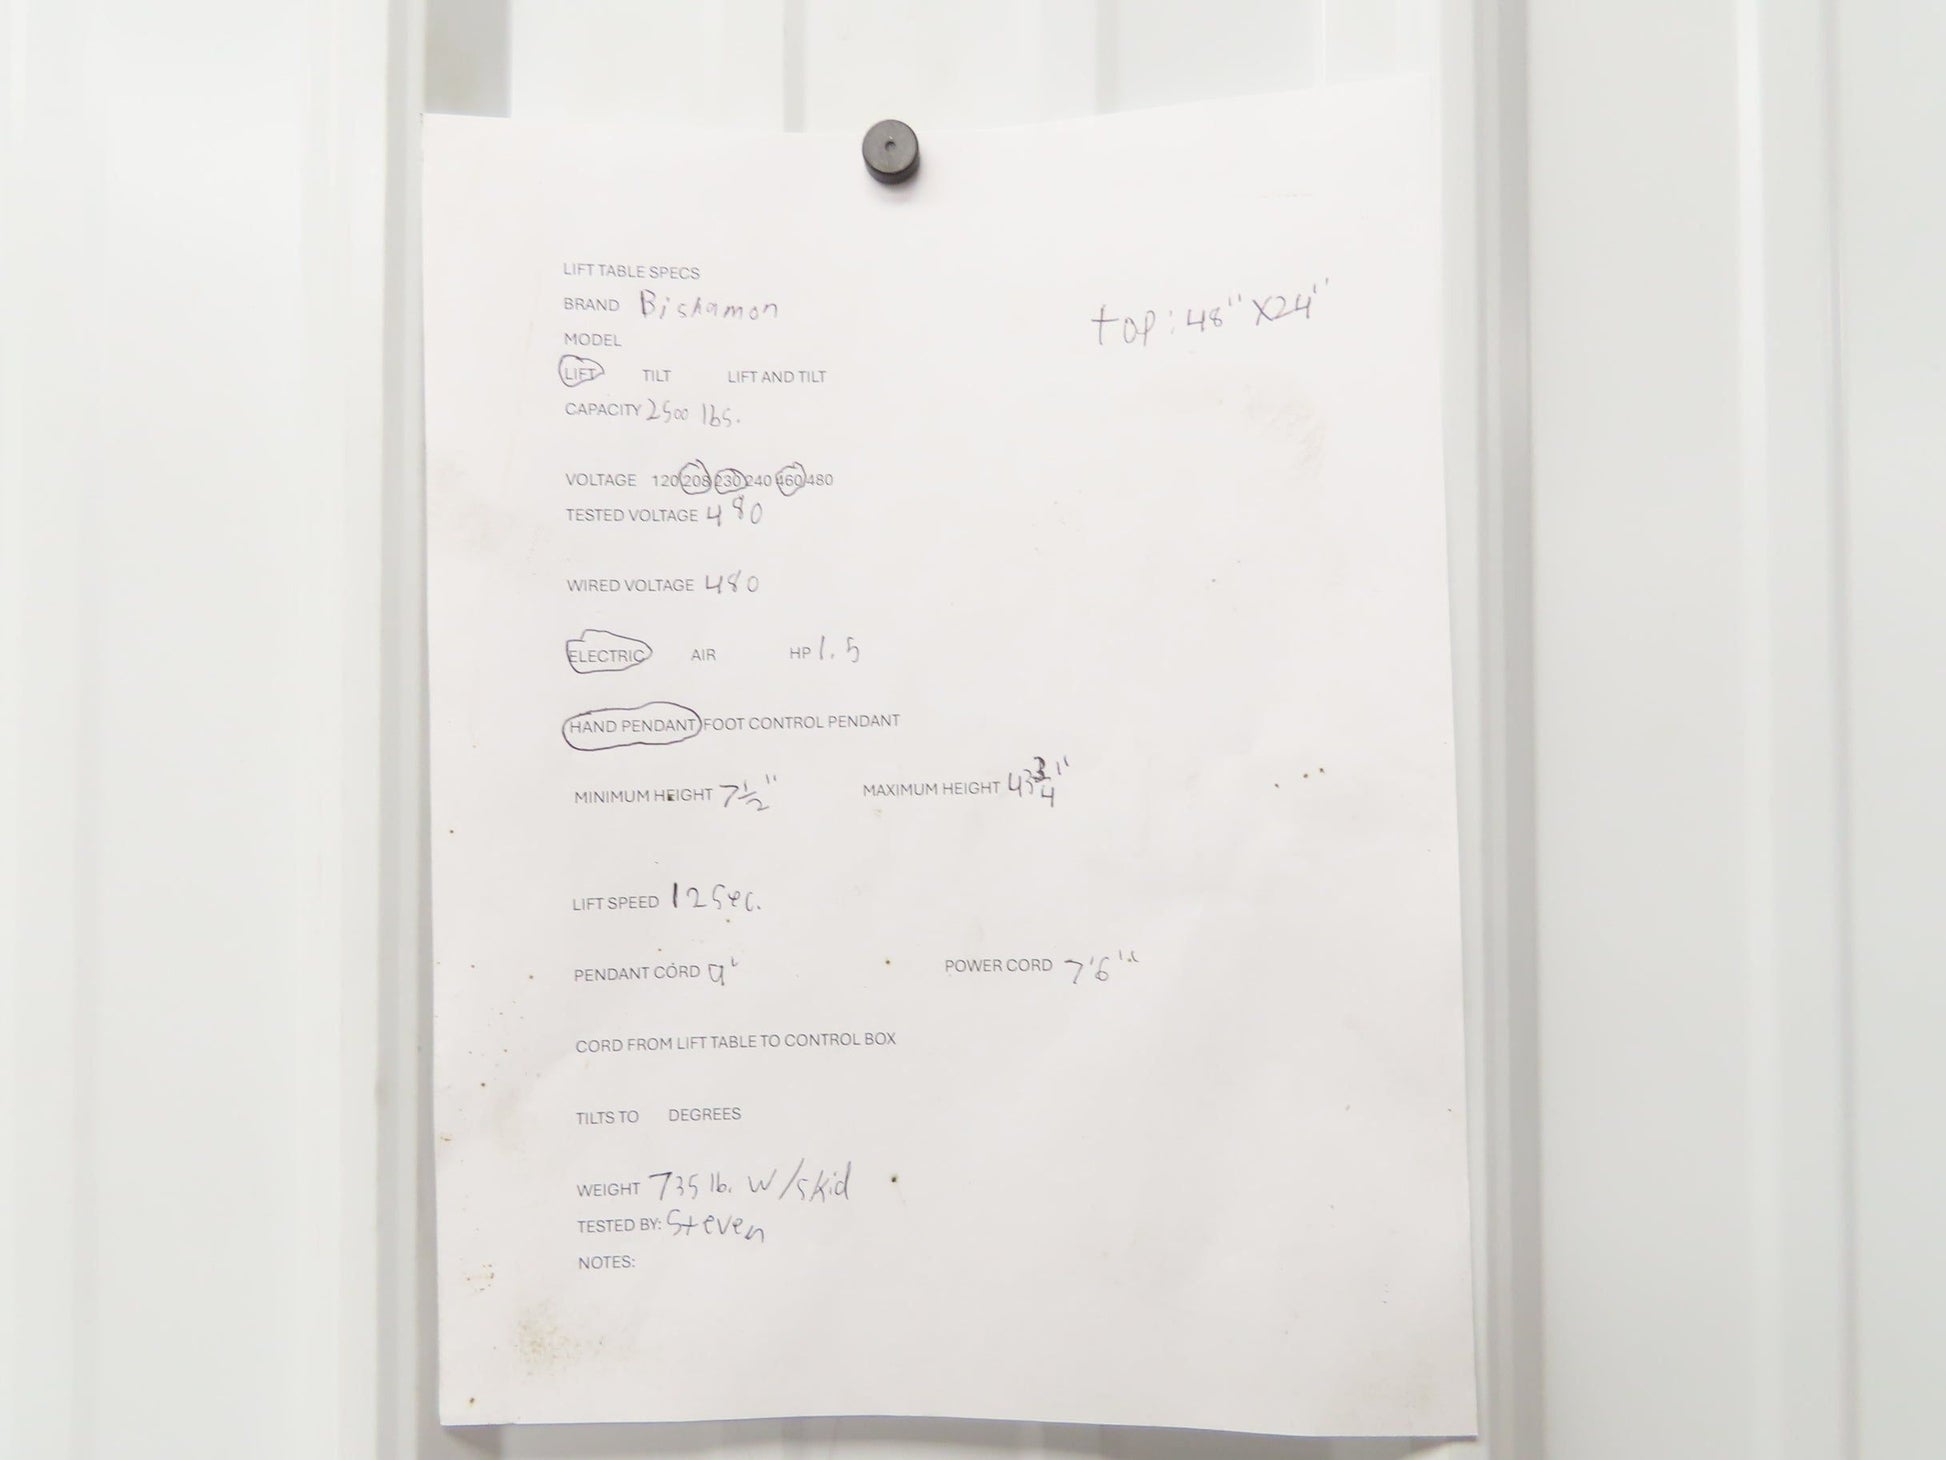 LIFT TABLE SPECS
BRAND Bishamon
top: 48" X24"
MODEL
LIFT TILT LIFT AND TILT
CAPACITY 2500 lbs.
VOLTAGE 120 208 230 240 460 480
TESTED VOLTAGE 480
WIRED VOLTAGE 480
ELECTRIC AIR HP 1.5
HAND PENDANT FOOT CONTROL PENDANT
MINIMUM HEIGHT 7 1/2" MAXIMUM HEIGHT 43 3/4"
LIFT SPEED 12 Sec.
PENDANT CORD 9' POWER CORD 7'6"
CORD FROM LIFT TABLE TO CONTROL BOX
TILTS TO DEGREES
WEIGHT 735 lb. W/skid
TESTED BY: Steven
NOTES: